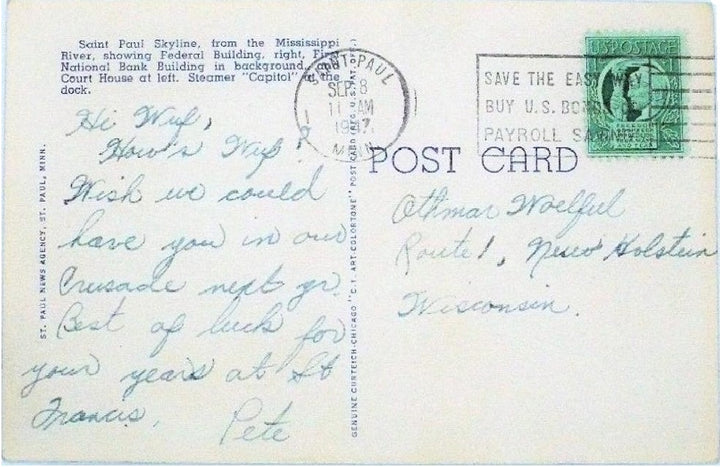 Saint Paul Skyline, from the Mississippi
River, showing Federal Building, right, First
National Bank Building in background, and
Court House at left. Steamer "Capitol" at the
dock.
SAINT PAUL
SEP 8
11 AM
MINN
SAVE THE EASY WAY
BUY U.S. BONDS
PAYROLL SAVINGS
U.S. POSTAGE
POST CARD
Hi Wuf,
How's Wuf?
Wish we could
have you in our
Crusade next yr.
Best of luck for
your years at St
Francis.
Pete
Othmar Woelful
Route 1, New Holstein
Wisconsin.
ST. PAUL NEWS AGENCY, ST. PAUL, MINN.
GENUINE CURTEICH-CHICAGO "C.T. ART-COLORTONE" POST CARD (REG. U.S. PAT. OFF.)